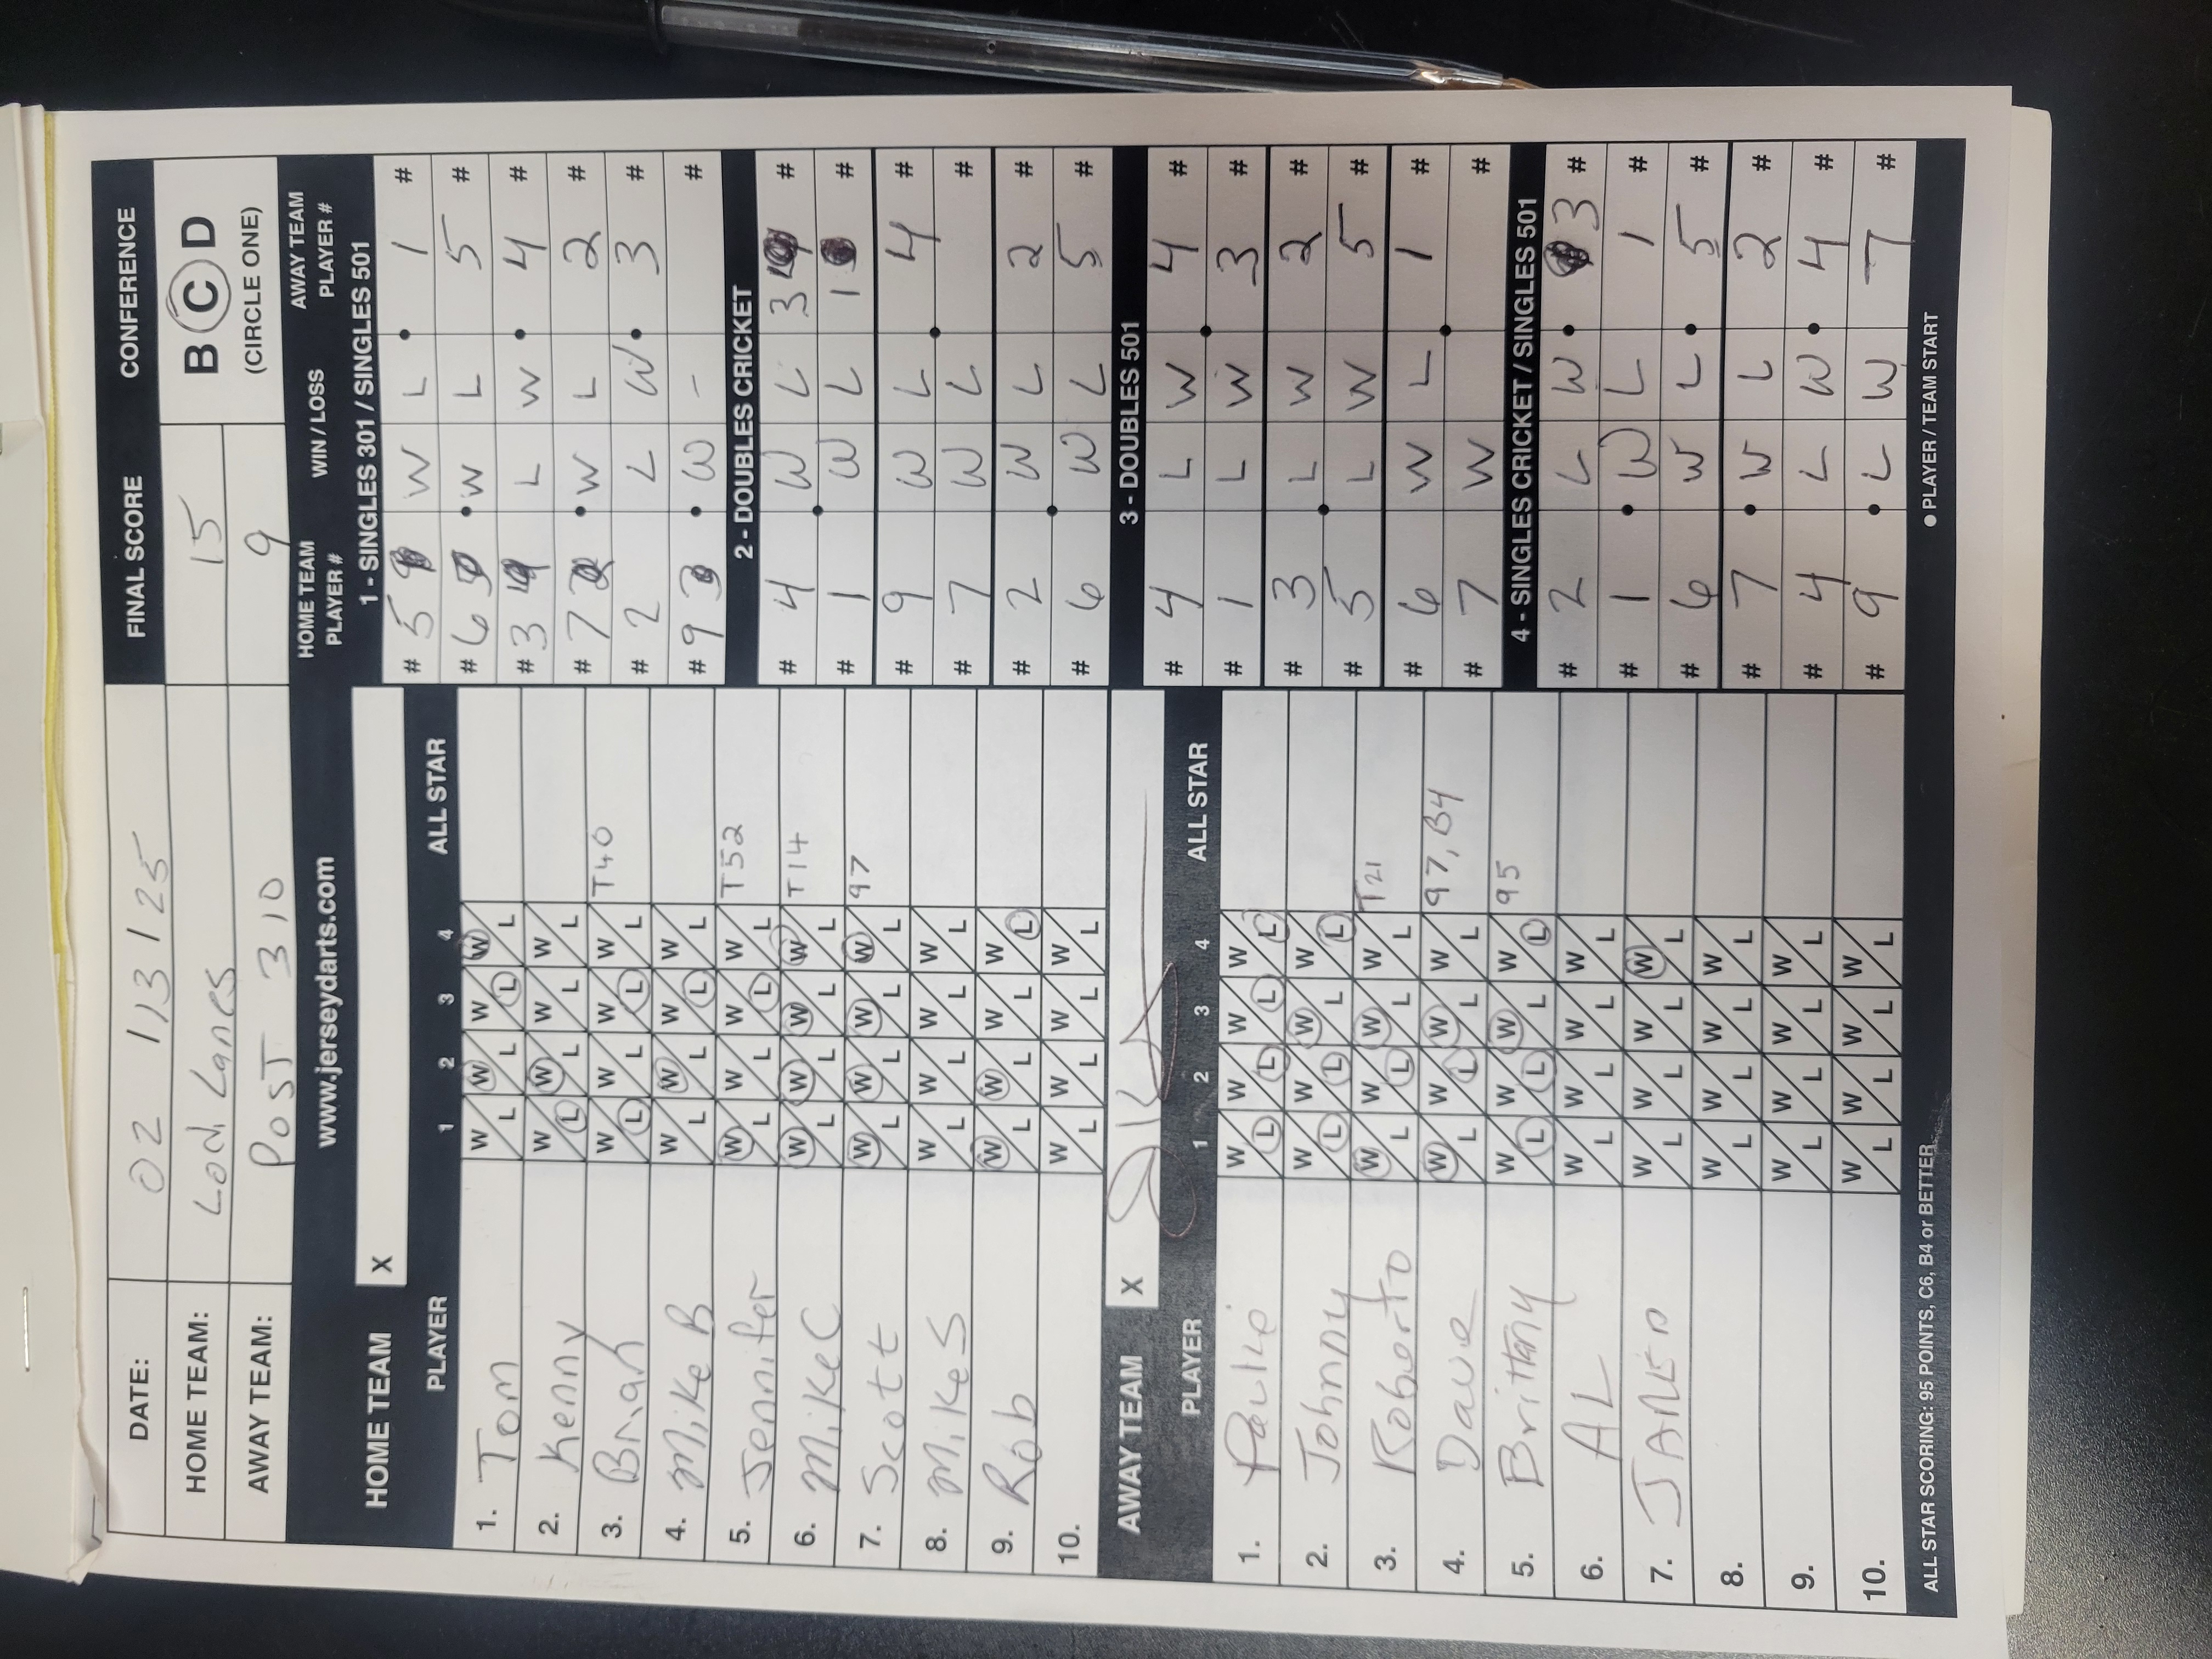 DATE: 02 / 13 / 25 FINAL SCORE CONFERENCE
HOME TEAM: Lodi Lanes 15 B C D
AWAY TEAM: Post 310 9 (CIRCLE ONE)
www.jerseydarts.com
HOME TEAM X
PLAYER 1 2 3 4 ALL STAR
1. Tom W L W L W L W L
2. Kenny W L W L W L W L
3. Brian W L W L W L W L T40
4. Mike B W L W L W L W L
5. Jennifer W L W L W L W L T52
6. Mike C W L W L W L W L T14
7. Scott W L W L W L W L 97
8. Mike S W L W L W L W L
9. Rob W L W L W L W L
10. W L W L W L W L
AWAY TEAM X
PLAYER 1 2 3 4 ALL STAR
1. Paulie W L W L W L W L
2. Johnny W L W L W L W L
3. Roberto W L W L W L W L T21
4. Dave W L W L W L W L 97, B4
5. Brittany W L W L W L W L 95
6. AL W L W L W L W L
7. W L W L W L W L
8. W L W L W L W L
9. W L W L W L W L
10. W L W L W L W L
HOME TEAM PLAYER # WIN / LOSS AWAY TEAM PLAYER #
1 - SINGLES 301 / SINGLES 501
# 5 W L • 1 #
# 6 • W L 5 #
# 3 L W • 4 #
# 7 • W L 2 #
# 2 L W • 3 #
# 9 • W - #
2 - DOUBLES CRICKET
# 4 W L 3 #
# 1 W L 1 #
# 9 W L 4 #
# 7 W L #
# 2 W L 2 #
# 6 W L 5 #
3 - DOUBLES 501
# 4 L W 4 #
# 1 L W 3 #
# 3 L W 2 #
# 5 L W 5 #
# 6 W L 1 #
# 7 W #
4 - SINGLES CRICKET / SINGLES 501
# 2 L W • 3 #
# 1 • W L 1 #
# 6 W L • 5 #
# 7 • W L 2 #
# 4 L W • 4 #
# 9 • L W 7 #
ALL STAR SCORING: 95 POINTS, C6, B4 or BETTER
• PLAYER / TEAM START